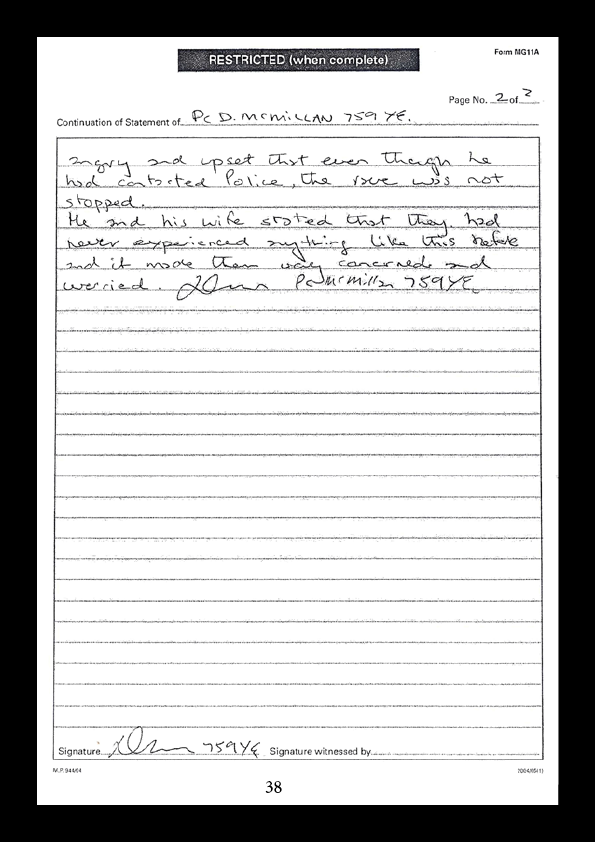 Form MG11A
RESTRICTED (when complete)
Page No. 2 of 2
Continuation of Statement of PC D. McMILLAN 759 YE.
angry and upset that even though he
had contacted Police, the rave was not
stopped.
He and his wife stated that they had
never experienced anything like this before
and it made them very concerned and
worried. PC McMillan 759YE
Signature 759YE Signature witnessed by
M.P. 944/64
38